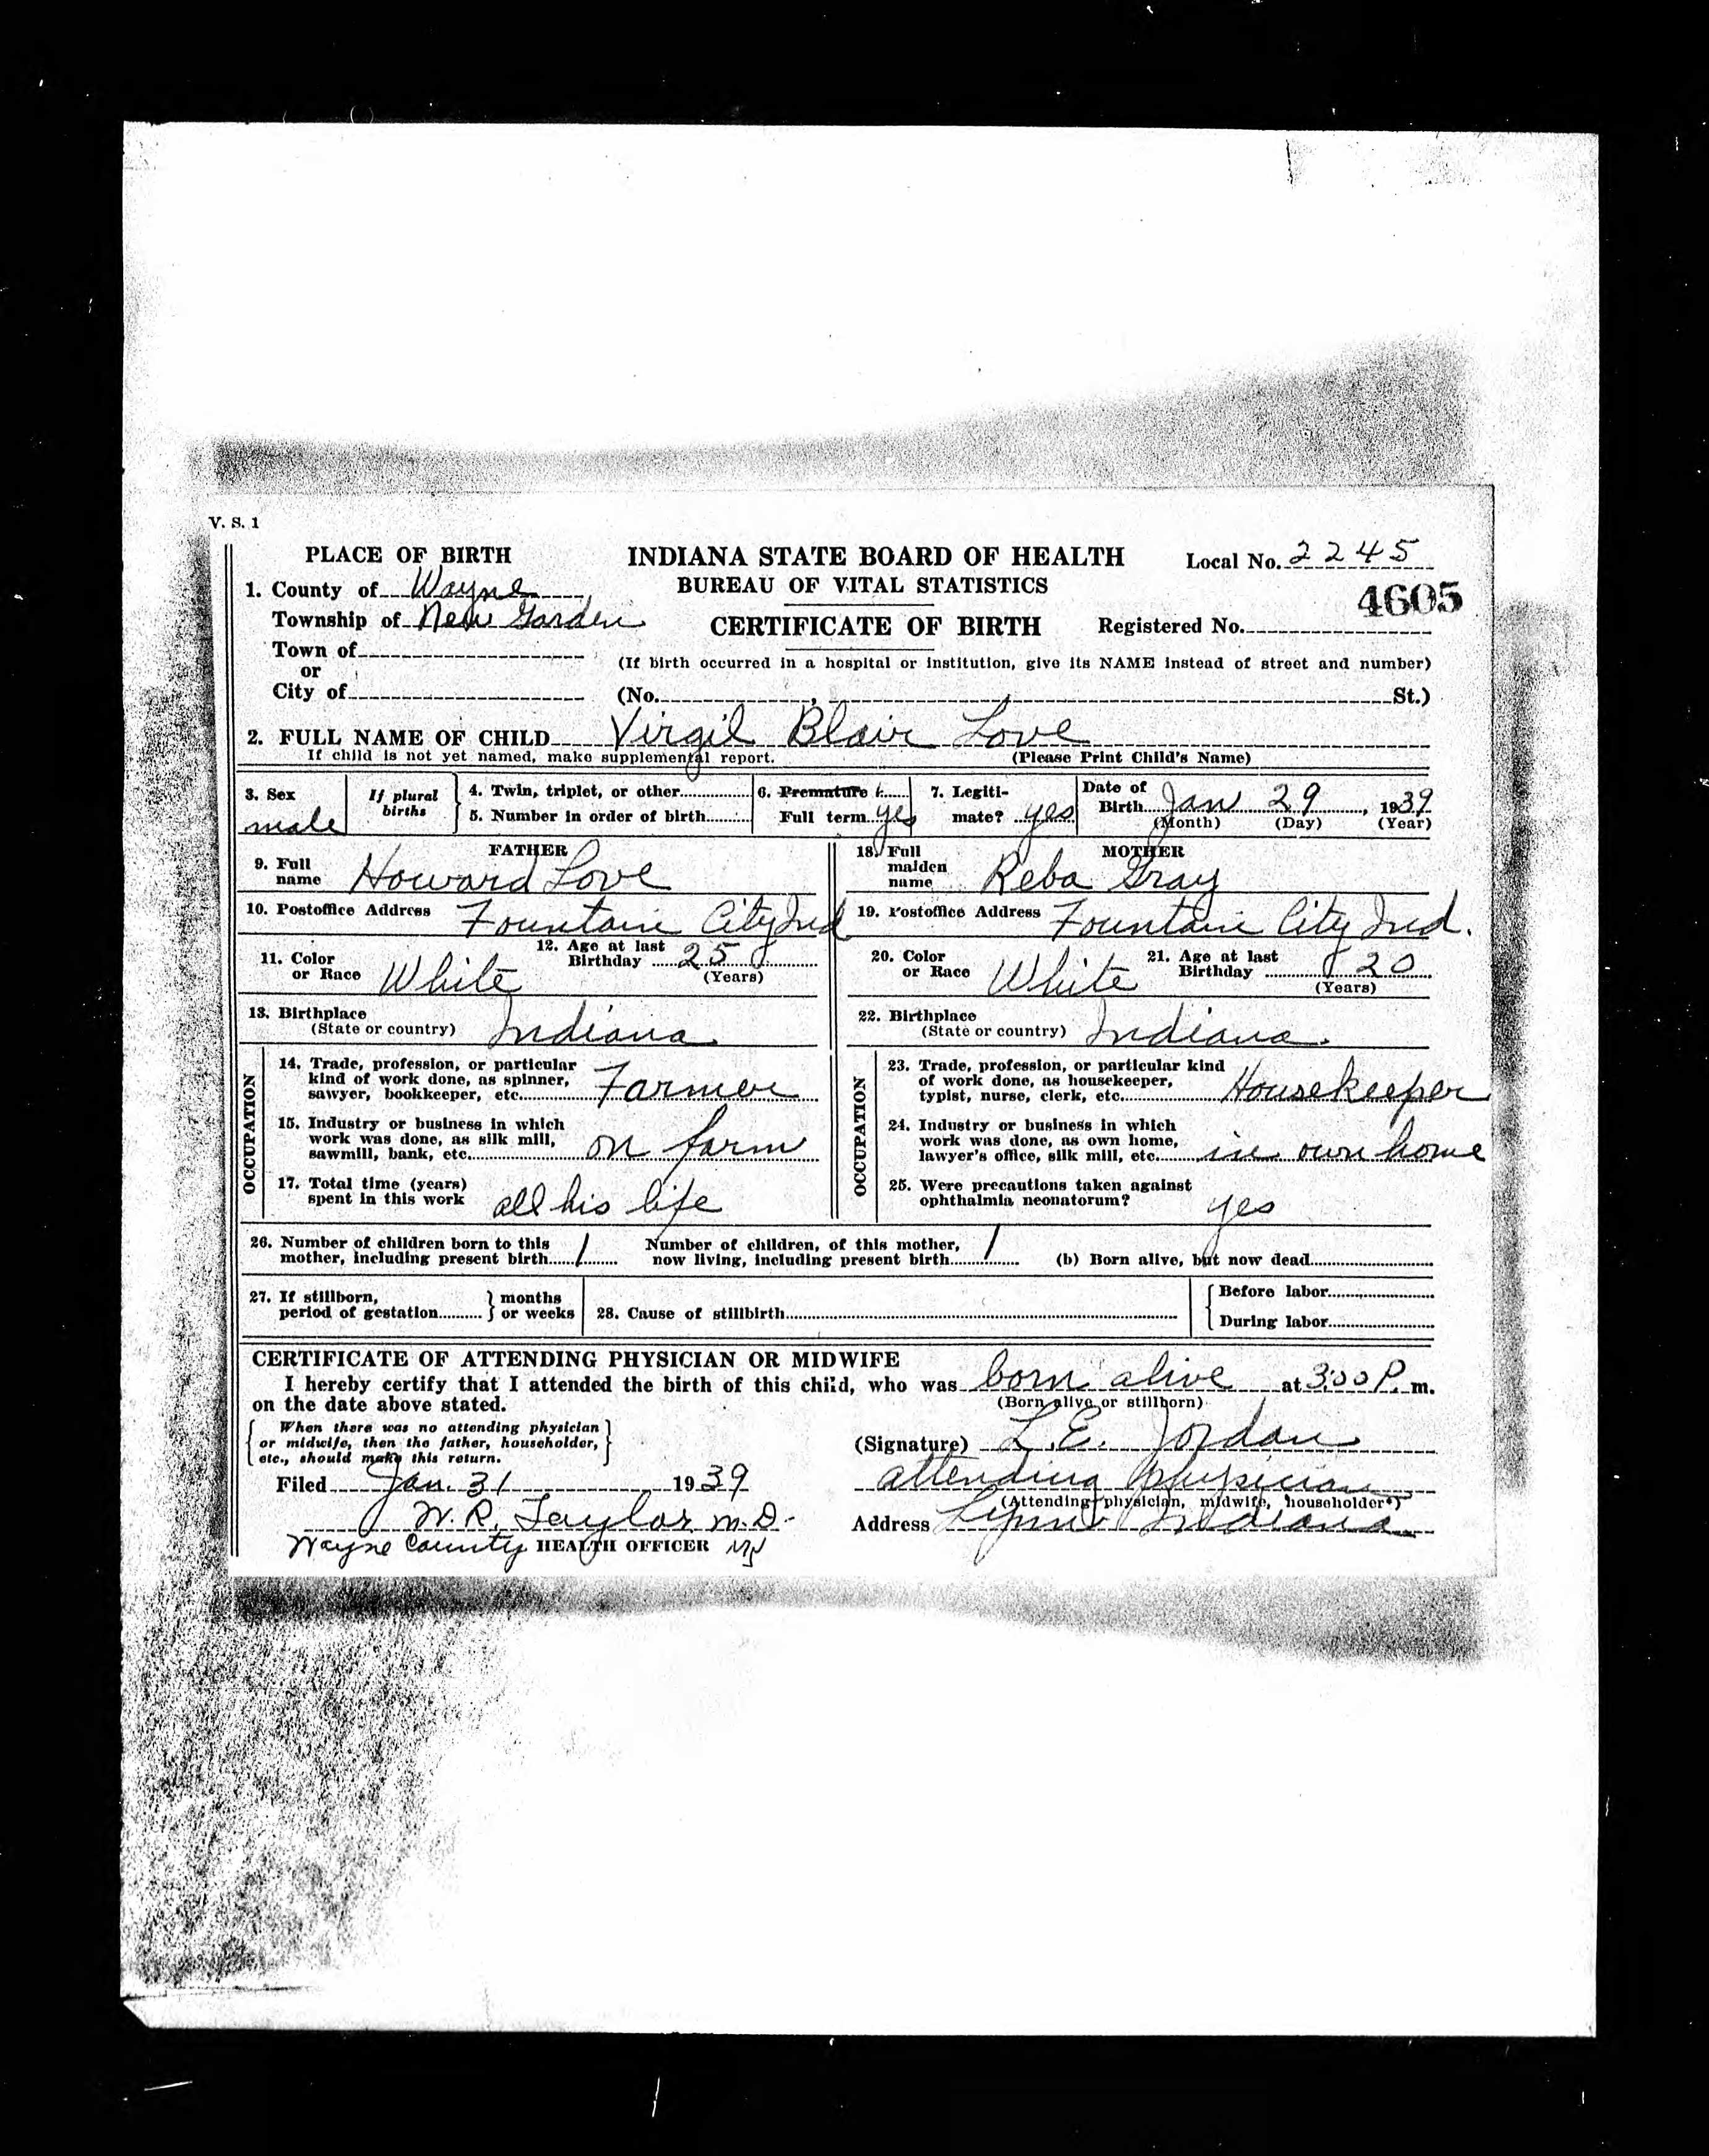 V. S. 1
PLACE OF BIRTH
INDIANA STATE BOARD OF HEALTH
Local No. 2245
1. County of Wayne
BUREAU OF VITAL STATISTICS
4605
Township of New Garden
CERTIFICATE OF BIRTH
Registered No.
Town of
or
(If birth occurred in a hospital or institution, give its NAME instead of street and number)
City of
(No. , St.)
2. FULL NAME OF CHILD Virgil Blair Love
If child is not yet named, make supplemental report.
(Please Print Child's Name)
3. Sex
male
If plural births
4. Twin, triplet, or other
5. Number in order of birth
6. Premature
Full term yes
7. Legitimate? yes
Date of Birth Jan 29, 1939
(Month) (Day) (Year)
FATHER
9. Full name Howard Love
10. Postoffice Address Fountain City Ind
11. Color or Race White
12. Age at last Birthday 25
(Years)
13. Birthplace
(State or country) Indiana
OCCUPATION
14. Trade, profession, or particular
kind of work done, as spinner,
sawyer, bookkeeper, etc. Farmer
15. Industry or business in which
work was done, as silk mill,
sawmill, bank, etc. on farm
17. Total time (years)
spent in this work all his life
MOTHER
18. Full maiden name Reba Gray
19. Postoffice Address Fountain City Ind.
20. Color or Race White
21. Age at last Birthday 20
(Years)
22. Birthplace
(State or country) Indiana.
OCCUPATION
23. Trade, profession, or particular kind
of work done, as housekeeper,
typist, nurse, clerk, etc. Housekeeper
24. Industry or business in which
work was done, as own home,
lawyer's office, silk mill, etc. in own home
25. Were precautions taken against
ophthalmia neonatorum? yes
26. Number of children born to this
mother, including present birth 1
Number of children, of this mother,
now living, including present birth 1
(b) Born alive, but now dead
27. If stillborn,
period of gestation } months or weeks
28. Cause of stillbirth
Before labor
During labor
CERTIFICATE OF ATTENDING PHYSICIAN OR MIDWIFE
I hereby certify that I attended the birth of this child, who was born alive at 3:00 P. m.
on the date above stated.
(Born alive or stillborn)
When there was no attending physician
or midwife, then the father, householder,
etc., should make this return.
(Signature) L.E. Jordan
attending physician
(Attending physician, midwife, householder*)
Address Lynn Indiana
Filed Jan. 31 1939
W. R. Taylor M.D.
Wayne County HEALTH OFFICER